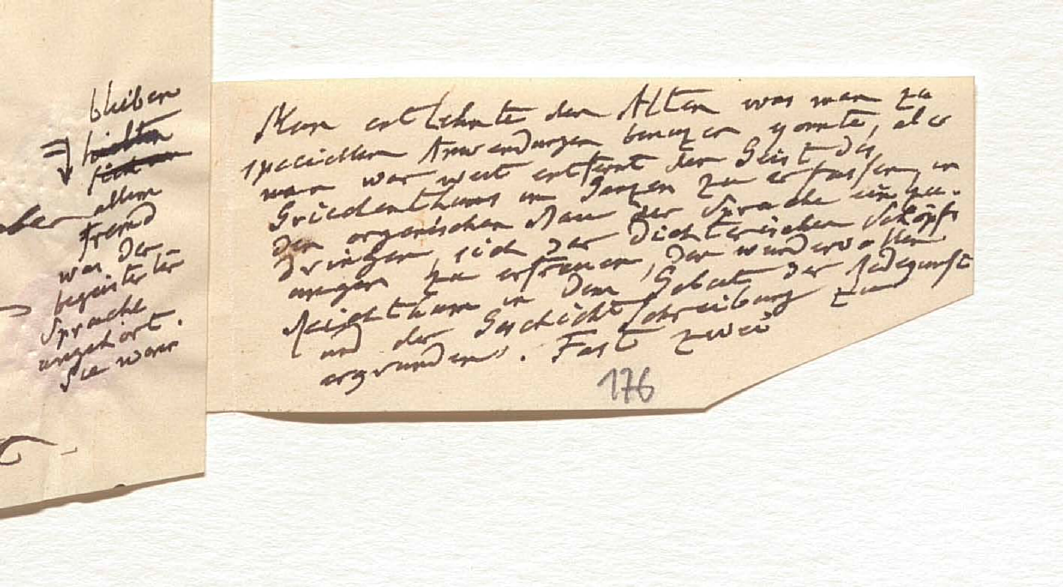 bleiben
hielten
sich
allem
aber
fremd
was der
begeisterten
Sprache
angehört.
Sie waren
Man entlehnte den Alten was man zu
speciellen Anwendungen benuzen konnte, aber
man war weit entfernt den Geist des
Griechenthums im Ganzen zu erfassen, in
den organischen Bau der Sprache einzu-
dringen, sich der dichterischen Schöpf-
ungen zu erfreuen, den wundervollen
Reichthum in dem Gebiet der Redekunst
und der Geschichtschreibung zu
ergründen. Fast zwei
176